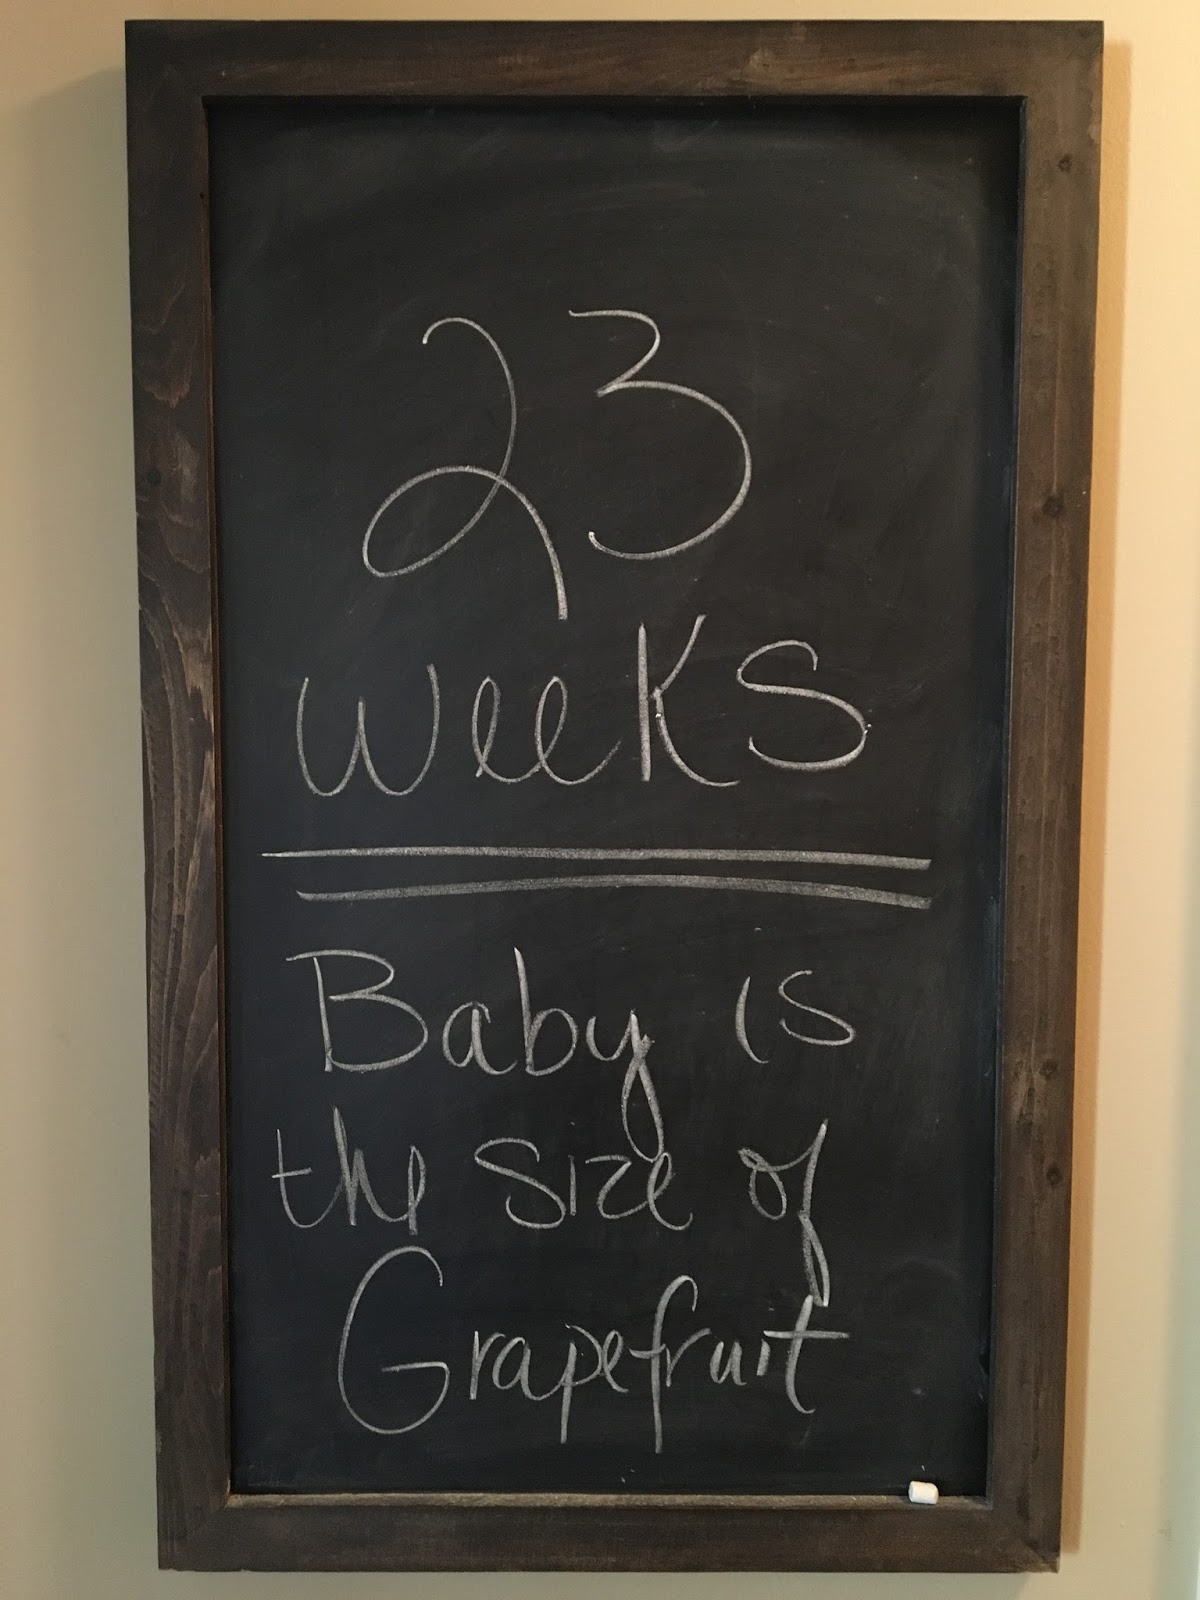 23
weeks
Baby is
the size of
Grapefruit